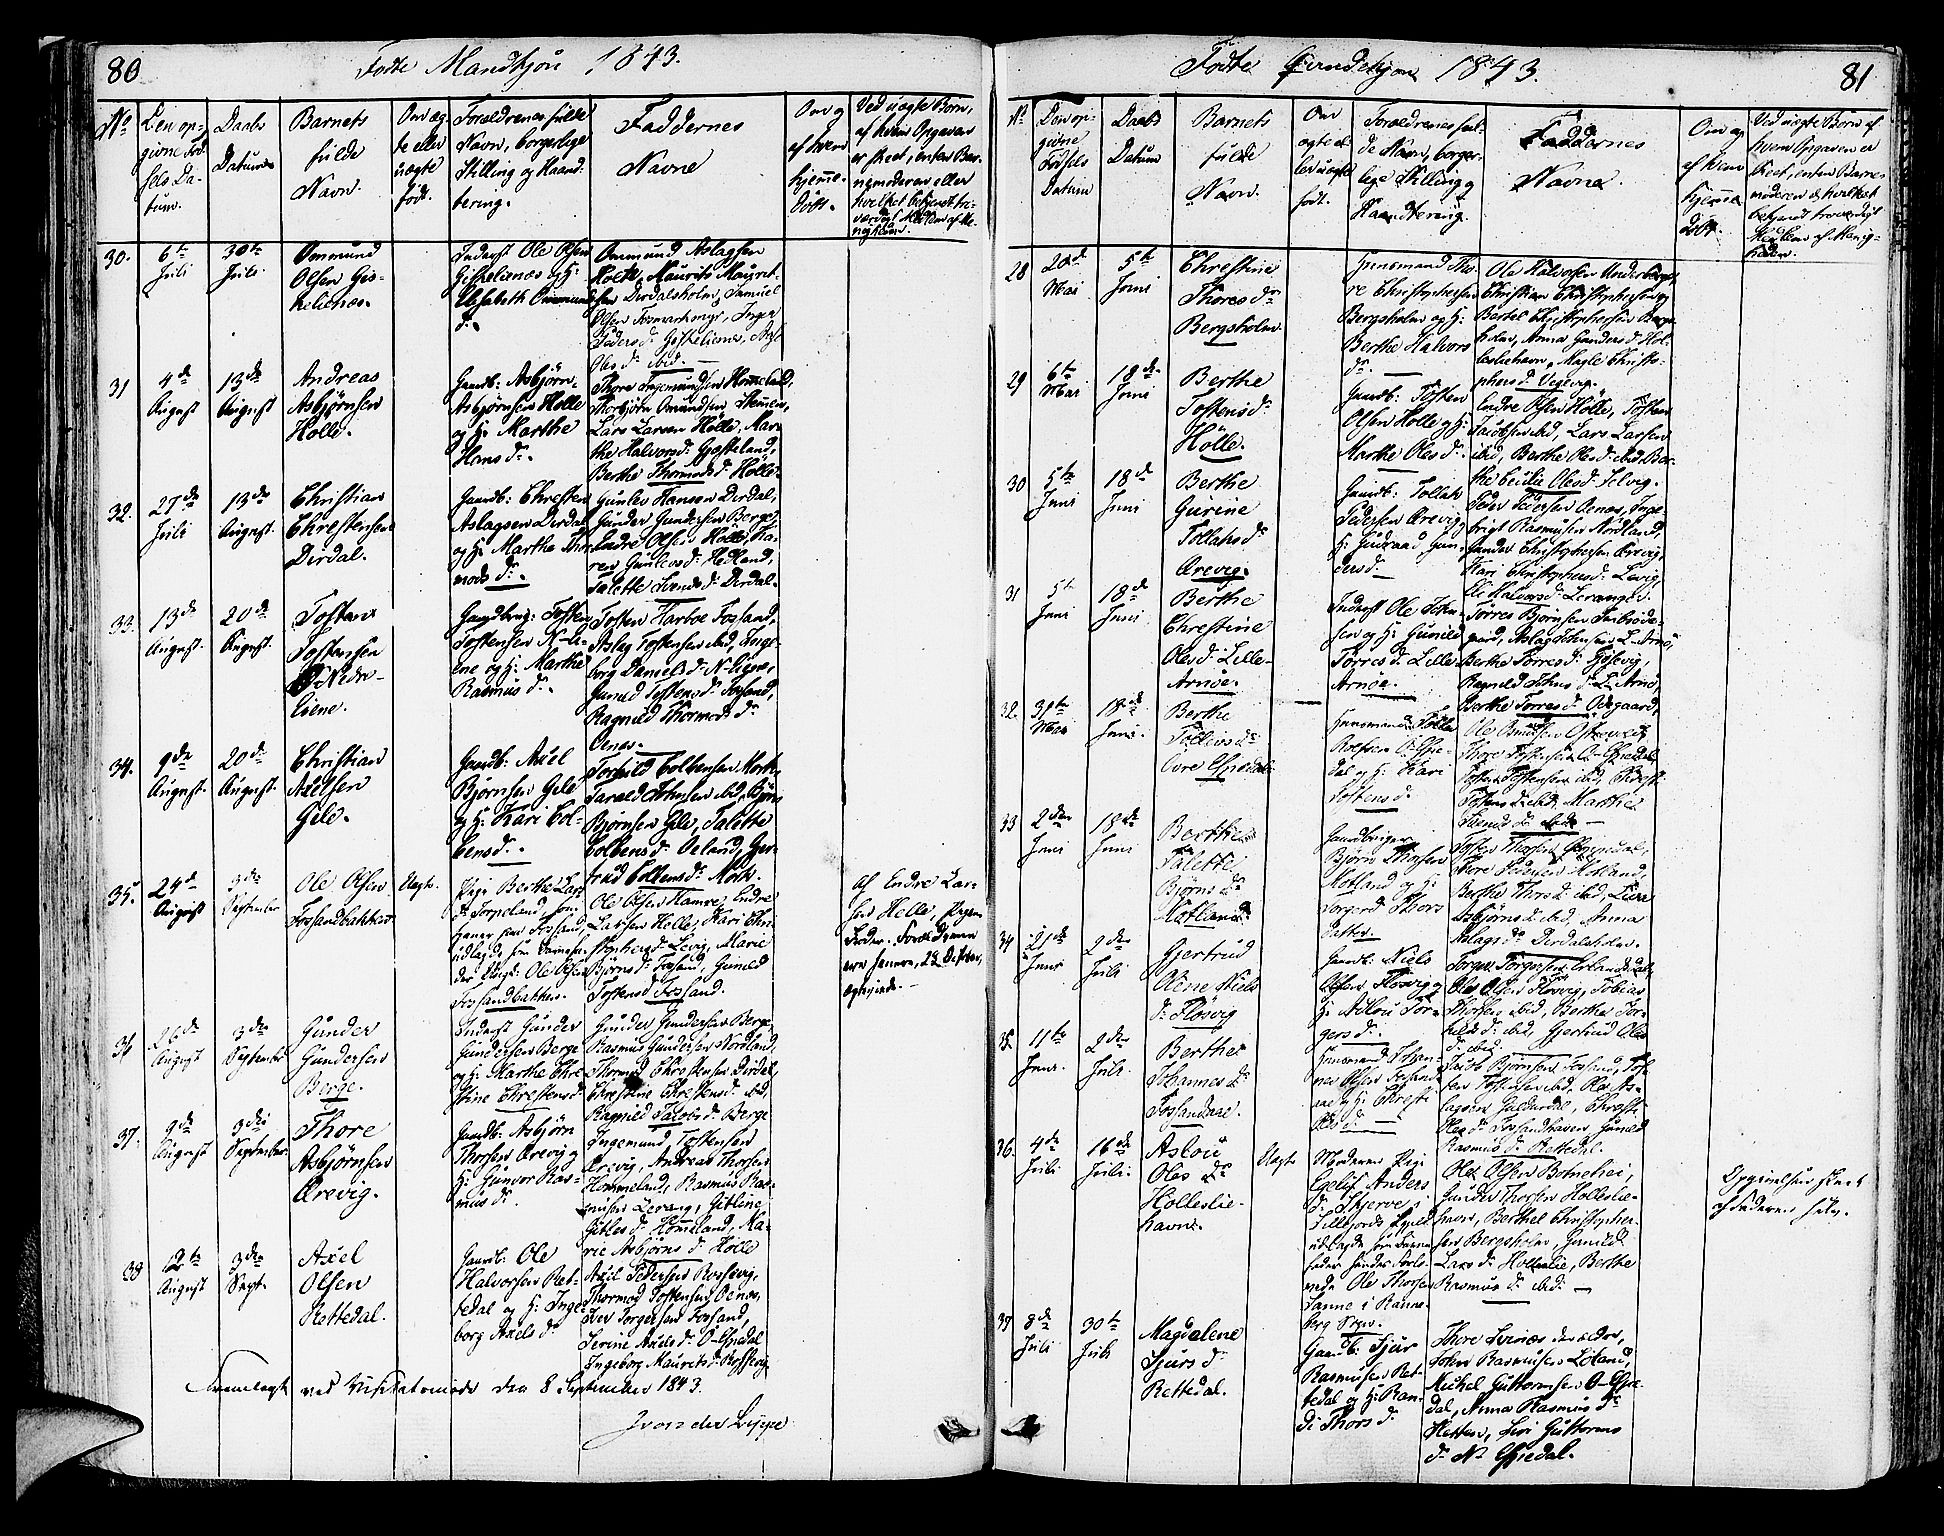 80
Fødte Mandkjøn 1843.
No
Den op-
givne Fød-
sels Da-
tum.
Daabs
Datum
Barnets
fulde
Navn.
Om æg-
te eller
uægte
født.
Forældrenes fulde
Navn, borgerlige
Stilling og Haand-
tering.
Faddernes
Navne
Om og
af hvem
hjemme-
døbt.
Ved uægte Børn,
af hvem Opgaven
er skeet, enten Bar-
nemoderen eller
hvilket bekjendt tro-
værdigt Medlem af Me-
nigheden.
30.
6te
Juli
30te
Juli.
Ommund
Olsen Gis-
kelienæs.
Inderst Ole Olsen
Giskelienæs og H:
Elisabeth Ommunds
d.
Ommund Aslagsen
Holte, Maurits Maurit-
sen Dirdalsholm, Samuel
Olsen Fosmarkenyr, Inger
Peders d. Giskelienæs,
Oles d. ibid. —
31
4de
August
13de
August
Andreas
Asbjørnsen
Holle.
Gaardb: Asbjørn
Asbjørnsen Holle
og H: Marthe
Hans d.
Thore Ingemundsen Hommeland,
Thorbjørn Omundsen
Lars Larsen Holle, Mar-
the Halvors d. Gjosteland,
Berthe Thormods d. Holle.
32.
27de
Juli
13de
August
Christian
Chrestensen
Dirdal.
Gaardb: Chresten
Aslagsen Dirdal
og H: Marthe Thor-
mods d.
Gunlev Hansen Dirdal,
Gunder Gundersen Berge,
Endre Olsen Holle, Ka-
ren Gunlevs d. Hedland,
Talette Svends d. Dirdal.
33.
13de
August.
20de
August.
Tosten
Tostensen
Nedre-
Liene.
Gaardbrug: Tosten
Tostensen N-Li-
ene og H: Marthe
Rasmus d.
Tosten Harboe Fossand,
Aslag Tostensen ibid, Inge-
borg Daniels d. N-Liene,
Gunild Tostens d. Fossand,
Ragnild Thormods d.
Oenæs.
34.
9de
August.
20de
August.
Christian
Axelsen
Gile.
Gaardb: Axel
Bjørnsen Gile
og H: Kari Col-
bens d.
Torkild Colbensen Mork,
Tarald Johnsen ibid, Bjørn
Bjørnsen Gile, Talette
Colbens d. Oeland, Ger-
trud Colbens d. Mork.
35.
24de
August
3die
September
Ole Olsen
Fossandbakken
Uægte.
Pige Berthe Lars
d. Torpeland,
udlagde som Barnefa-
der Ungk: Ole Olsen
Fossandbakken.
Ole Olsen Hamre, Endre
Larsen Helle, Kari Chri-
stophers d. Levig, Marie
Bjørns d. Fossand, Gunild
Tostens d. Fossand.
Af Endre Lar-
sen Helle,
36
26de
August
3die
September
Gunder
Gundersen
Berge.
Inderst Gunder
Gundersen Berge
og H: Marthe Chre-
stine Chrestens d.
Gunder Gundersen Berge,
Rasmus Gundersen Nordland,
Thormod Chrestensen Dirdal,
Chrestine Chrestens d. ibid,
Ragnild Jacobs d. Berge
37.
9de
August
3die
September
Thore
Asbjørnsen
Ørevig.
Gaardb: Asbjørn
Thorsen Ørevig og
H: Gunvor Ras-
mus d.
Ingemund Tostensen
Ørevig, Andreas Thorsen
Hommeland, Rasmus Ras-
musen Levang, Gitline
Gitles d. Hommeland, Ma-
rie Asbjørns d. Holle
38
12te
August
3die
Sept.
Axel
Olsen
Rettedal.
Gaardb: Ole
Halvorsen Ret-
tedal og H: Inge-
borg Axels d.
Axel Pedersen Rossevig,
Thormod Tostensen Oenæs,
Iver Torgersen Fossand,
Serine Axels d. O-Espedal
Ingeborg Maurits d. Rossevig
Fremlagt ved Visitatsmøde den 8 September 1843.
J von der Lippe.
Fødte Qvindekjøn 1843.
81
No
Den op-
givne
Fødsels
Datum
Daabs
Datum
Barnets
fulde
Navn.
Om
ægte el-
ler uægte
født.
Forældrenes ful-
de Navn, borger-
lige Stilling og
Haandtering.
Faddernes
Navne.
Om og
af hvem
hjemme-
døbt.
Ved uægte Børn af
hvem Opgaven er
skeet, enten Barne-
moderen eller hvilket
bekjendt troværdigt
Medlem af Menig-
heden.
28
20de
Mai
5te
Juni
Chrestine
Thores d.
Bergsholm.
Huusmand Tho-
re Christophersen
Bergsholm og H:
Berthe Halvors
d. —
Ole Halvorsen Underberge,
Christian Christophersen og
Bertel Christophersen Bergs-
holm, Anna Gunders d. Hol-
leslihavn, Magle Christo-
phers d. Vegevig.
29
6te
Mai
18de
Juni
Berthe
Tostens d.
Holle.
Gaardb: Tosten
Olsen Holle og H:
Marthe Oles d.
Endre Olsen Holle, Tosten
Jacobsen ibid, Lars Larsen
ibid, Berthe Oles d. ibid, Ber-
the Cecilie Oles d. Selvig.
30
5te
Juni
18de
Juni
Berthe
Gurine
Tollaks d.
Ørevig.
Gaardb: Tollak
Pedersen Ørevig og
H: Gudraad Gun-
ders d. —
Peder Pedersen Oenæs, Inge-
brigt Rasmusen Nordland,
Gunder Christophersen Ørevig,
Kari Christophers d. Levig,
Halvors d. Levangen.
31
5te
Juni
18de
Juni
Berthe
Chrestine
Oles d. Lille-
Arnøe.
Inderst Ole John-
sen og H: Gunild
Torres d. Lille
Arnøe.
Torres Bjørnsen
gaard, Aslag Johnsen L-Arnø,
Berthe Torres d.
Ragnild Johns d. L-Arnø,
Berthe Torres d. Odegaard,
32.
31te
Mai
18de
Juni.
Berthe
Tollevs d.
Øvre Espedal
Huusmand Tollev
Rolfsen O-Espe-
dal og H: Kari
Tostens d.
Ole Omundsen
Thore Tostensen O-Espedal,
Tosten Tostensen ibid,
Tostens d. ibid, Marthe
Svends d. ibid —
33
2den
Juni
18de
Juni
Berthe
Talette
Bjørns d.
Motland.
Gaardbruger
Bjørn Thorsen
Motland og H:
Torgerd Thors
datter.
Tosten Thorsen Espedal,
Tore Pedersen Motland,
Berthe Thors d. ibid, Liva
Asbjørns d. ibid, Anna
Aslags d. Dirdalsholm.
34
21de
Juni
2den
Juli
Gjertrud
Olene Niels
d. Fløsvig
Gaardb: Niels
Olsen Fløsvig og
H: Aslou Tor-
gers d. —
Torger Torgersen
Ole Olsen Fløsvig, Tobias
Thorsen ibid, Berthe Tor-
kilds d. ibid, Gjertrud Oles
d. ibid. —
35.
11te
Juni.
2den
Juli.
Berthe
Johannes d.
Fossandnæs.
Huusmand Johan-
nes Olsen Fossand-
næs og H: Christi
Oles d. —
Jacob Bjørnsen Fossand, To-
sten Tostensen ibid, Ole As-
lagsen Guldardal, Christi
Oles d. Fossandhaven, Gunild
Rasmus d. Rettedal.
36.
4de
Juli
16de
Juli.
Aslou
Oles d.
Holleslie-
havn.
Uægte
Moderen Pige
Egelof Anders
d. Skjerve
udlagde som Barne-
fader
Ole Thorsen
Sanne i Ranne-
berg Sogn.
Ole Olsen Botnehei,
Gunder Thorsen Holleslie-
havn, Berthel Christopher-
sen Bergsholm, Gunild
Lars d. Holleslie, Berthe
Rasmus d. ibid. —
Opgivelsen skeet
af Faderen selv.
37
8de
Juli
30te
Juli
Magdalene
Sjurs d.
Rettedal.
Gaardb: Sjur
Rasmusen Ret-
tedal og H: Ran-
di Thors d.
Thore Svines den ældre,
John Rasmusen Leland,
Mikel Guttormsen O-Espe-
dal, Anna Rasmus d.
Hetten, Siri Guttorms
d. N. Espedal.